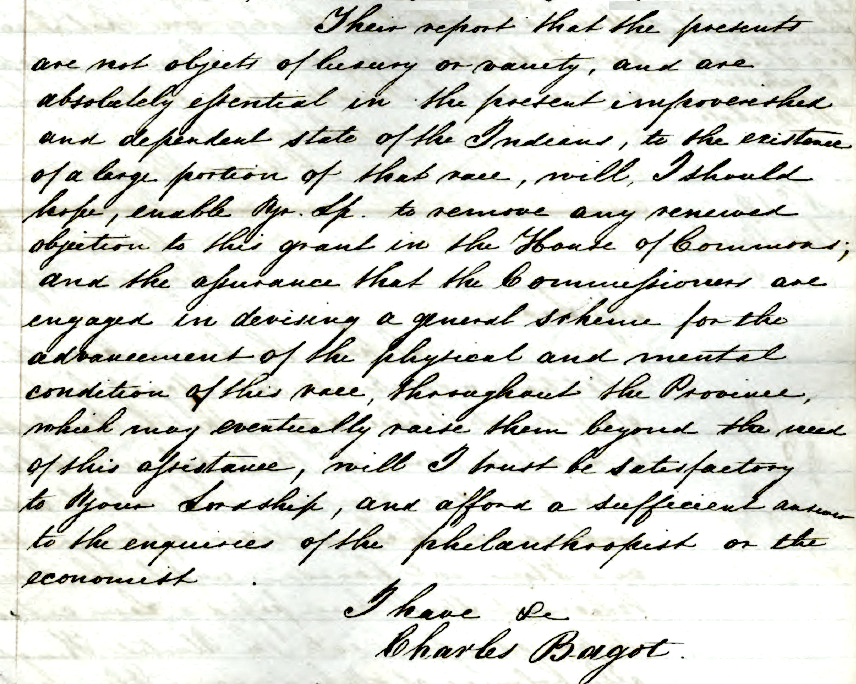 Their report that the presents
are not objects of luxury or vanity, and are
absolutely essential in the present impoverished
and dependent state of the Indians, to the existence
of a large portion of that race, will, I should
hope, enable Yr. Lp. to remove any renewed
objection to this grant in the House of Commons;
and the assurance that the Commissioners are
engaged in devising a general scheme for the
advancement of the physical and mental
condition of this race, throughout the Province,
which may eventually raise them beyond the need
of this assistance, will I trust be satisfactory
to Your Lordship, and afford a sufficient answer
to the enquiries of the philanthropist or the
economist.
I have &c
Charles Bagot.